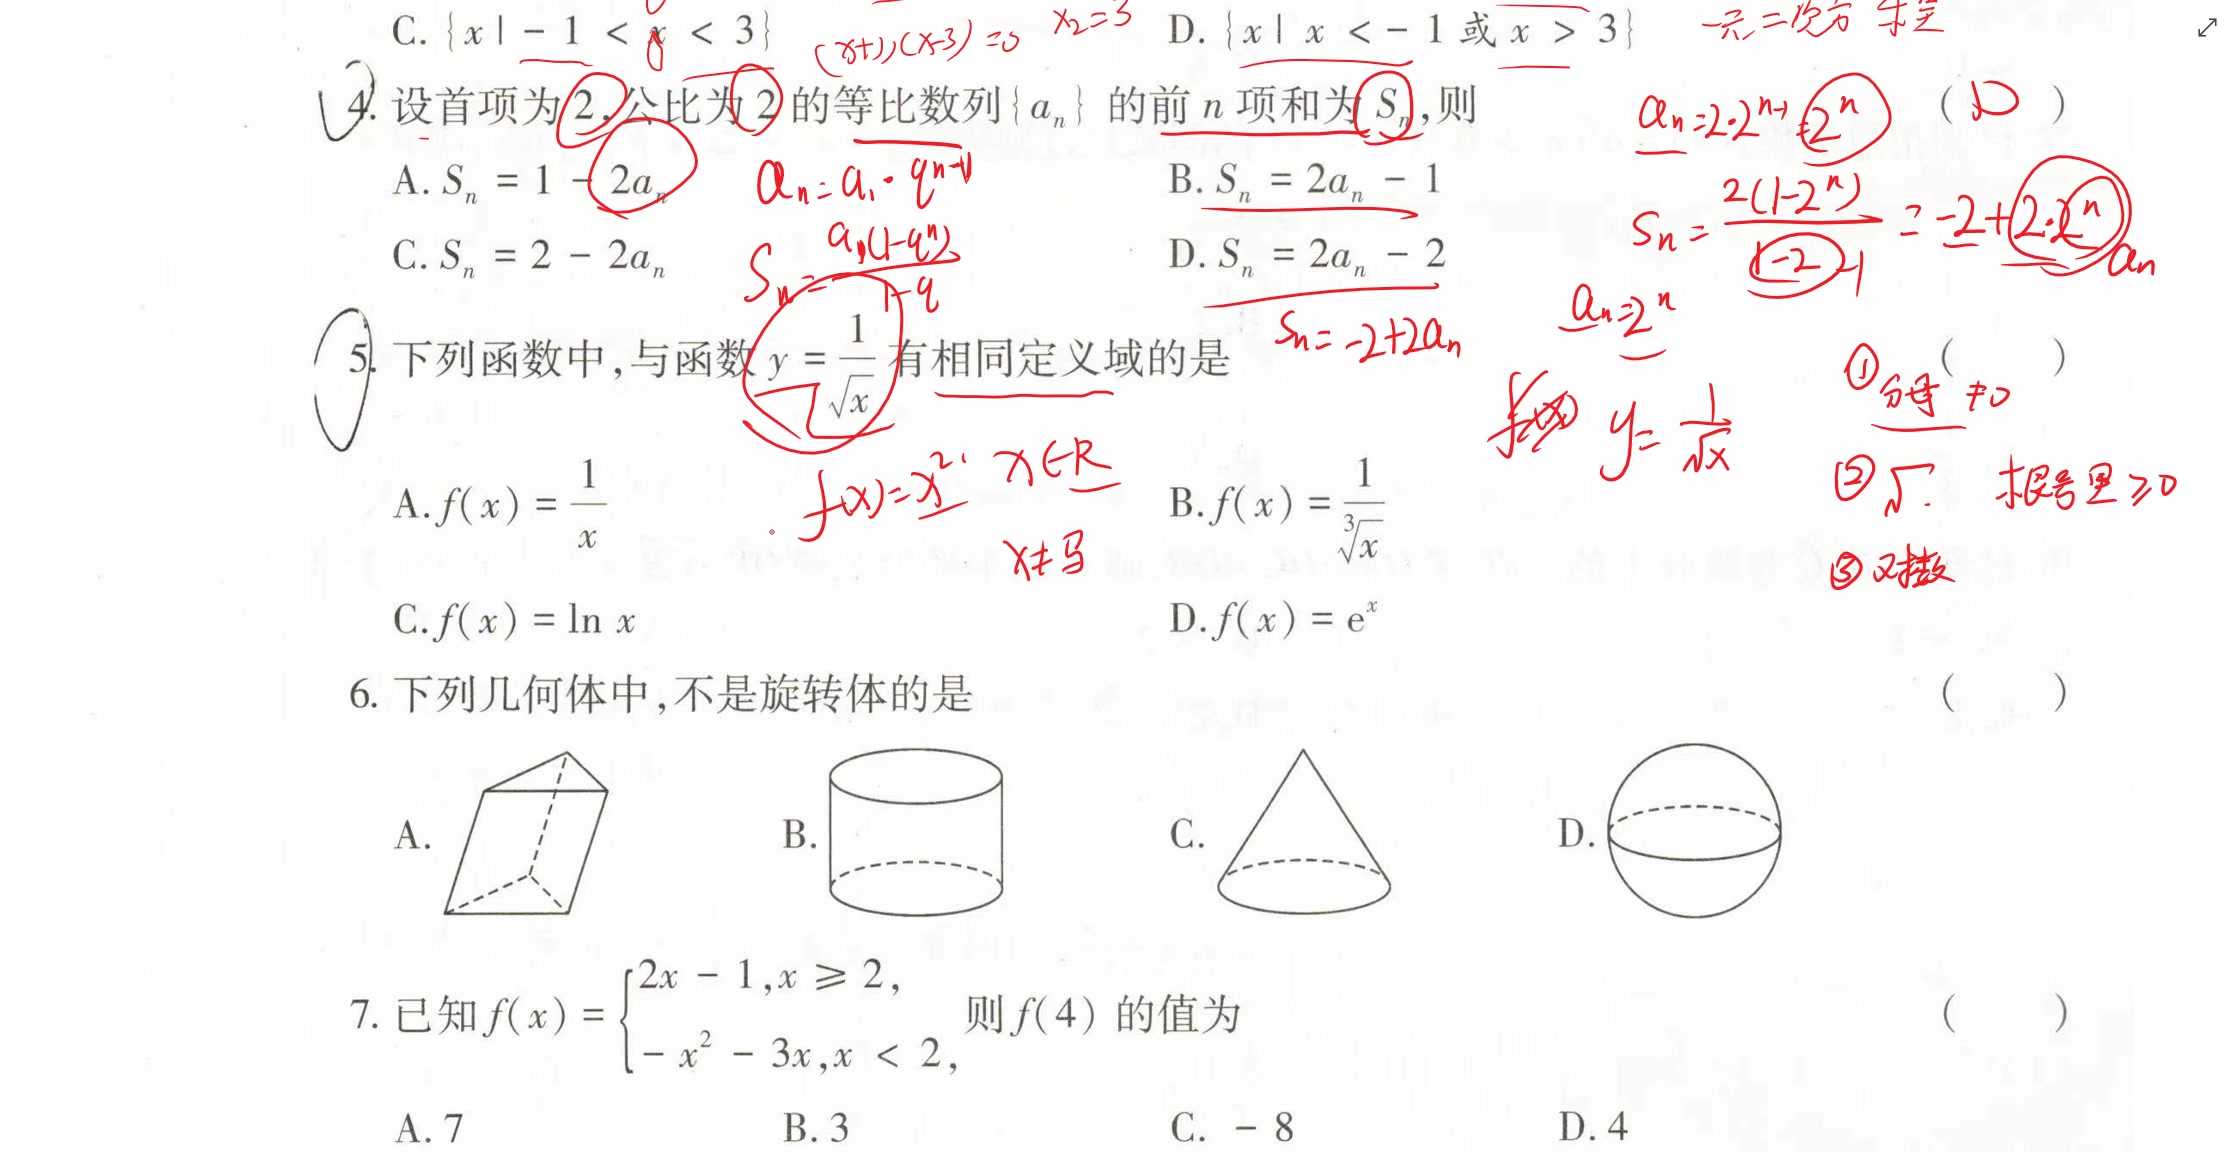 C. {x | - 1 < x < 3}
(x+1)(x-3) = 0
x₂=3
D. {x | x < - 1 或 x > 3}
4. 设首项为 2,公比为 2 的等比数列{aₙ} 的前 n 项和为 Sₙ,则
aₙ=2·2ⁿ⁻¹=2ⁿ
( D )
A. Sₙ = 1 - 2aₙ
aₙ=a₁·qⁿ⁻¹
B. Sₙ = 2aₙ - 1
Sₙ = 2(1-2ⁿ)/(1-2) = -2+2·2ⁿ
-1
aₙ
C. Sₙ = 2 - 2aₙ
Sₙ = a₁(1-qⁿ)/(1-q)
D. Sₙ = 2aₙ - 2
Sₙ= -2+2aₙ
aₙ=2ⁿ
5. 下列函数中,与函数 y = 1/√x 有相同定义域的是
( )
y= 1/√x
① 分母 ≠0
② √ 根号里 ≥0
③ 对数
A. f(x) = 1/x
f(x)=x² x∈R
B. f(x) = 1/∛x
C. f(x) = ln x
D. f(x) = eˣ
6. 下列几何体中,不是旋转体的是
( )
A.
B.
C.
D.
7. 已知 f(x) = { 2x - 1,x ≥ 2,
- x² - 3x,x < 2,
则 f(4) 的值为
( )
A. 7
B. 3
C. - 8
D. 4